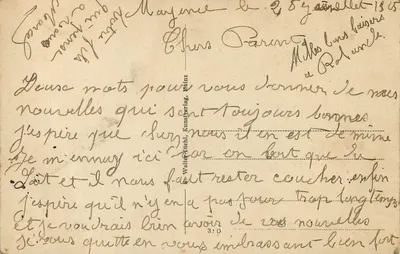 Mayence le 25 juillet 19
Chers Parent
Milles bons baisers
a Rolande
Deux mots pour vous donner de mes
nouvelles qui sont toujours bonnes
j'espère que chez vous il en est de même
Je m'ennuy ici car on boit que du
lait et il nous faut rester coucher enfin
j'espère qu'il n'y en a pas pour trop longtemps
et je voudrais bien avoir de vos nouvelles
Je vous quitte en vous embrassant bien fort
votre fils
qui pense
a vous